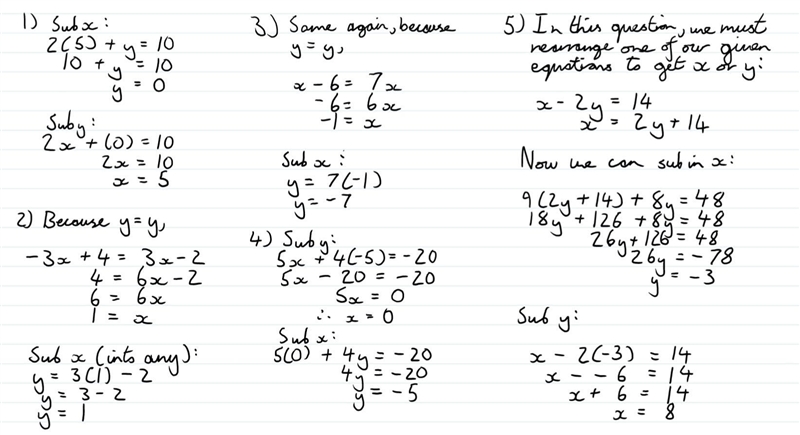 1) Sub x:
2(5) + y = 10
10 + y = 10
y = 0
Sub y:
2x + (0) = 10
2x = 10
x = 5
2) Because y = y,
-3x + 4 = 3x - 2
4 = 6x - 2
6 = 6x
1 = x
Sub x (into any):
y = 3(1) - 2
y = 3 - 2
y = 1
3) Same again, because
y = y,
x - 6 = 7x
-6 = 6x
-1 = x
Sub x:
y = 7(-1)
y = -7
4) Sub y:
5x + 4(-5) = -20
5x - 20 = -20
5x = 0
∴ x = 0
Sub x:
5(0) + 4y = -20
4y = -20
y = -5
5) In this question, we must
rearrange one of our given
equations to get x or y:
x - 2y = 14
x = 2y + 14
Now we can sub in x:
9(2y + 14) + 8y = 48
18y + 126 + 8y = 48
26y + 126 = 48
26y = -78
y = -3
Sub y:
x - 2(-3) = 14
x - - 6 = 14
x + 6 = 14
x = 8